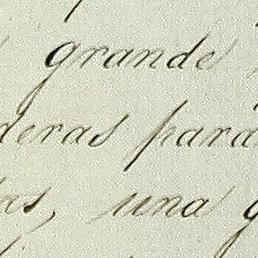 grande
deras para
as, una g